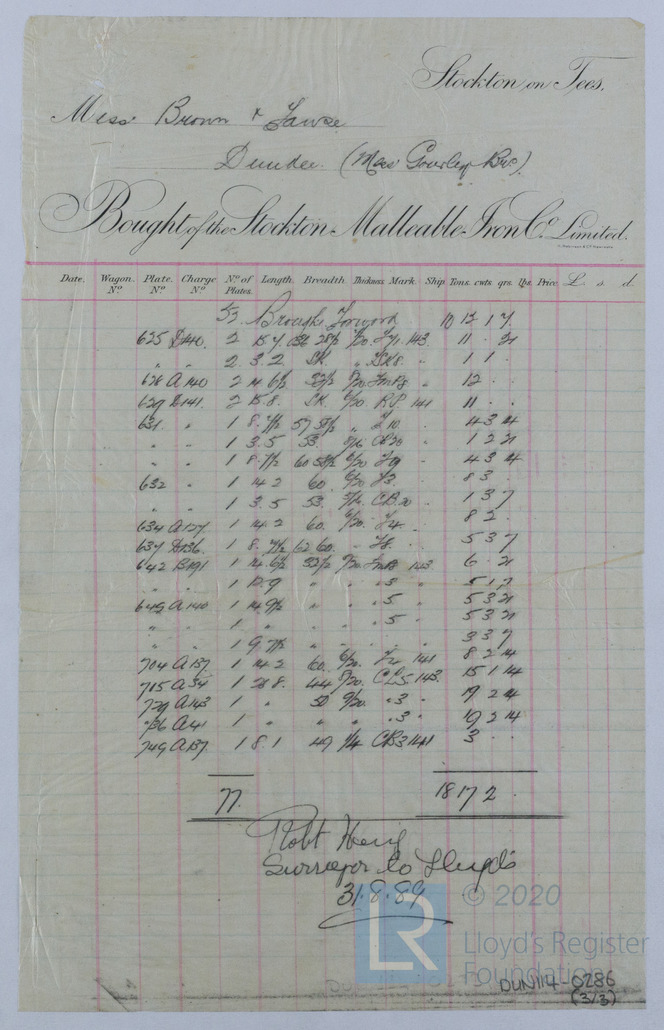 Stockton on Tees.
Mess Brown &
Dundee. (Mess Gourlay Bros).
Bought of the Stockton Malleable Iron Co. Limited.
Date. Wagon. No. Plate. No. Charge No. No. of Plates. Length. Breadth. Thickness Mark. Ship Tons. cwts. qrs. lbs. Price. £ s. d.
52 Brought Forward 10 12 1 7
625 2 143 11 . 21
" " 2 3.2 SK " 1 1 .
628 A140 2 14 6½ 32½ 12 . .
629 D141 2 15.8. SK 6/20 141 11 . .
631 " 1 8. 7½ 57 51½ " 4 3 14
" " 1 3.5 53. 1 2 21
" " 1 8.7½ 60 58½ 6/20 4 3 14
632 " 1 14 2 60. 6/20 8 3 .
" " 1 3.5 53. 1 3 7
634 A137 1 14 2 60. 6/20 8 2 .
637 D136 1 8. 7½ 62 60. " 5 3 7
642 B191 1 14.6½ 32½ 143 6 . 21
" " 1 " " " 3 " 5 1 7
649 A140 1 14 9½ " " " 5 " 5 3 21
" " 1 " " " " 5 " 5 3 21
" " 1 9 7½ " " 3 3 7
704 A137 1 14 2 60. 6/20 141 8 2 14
705 A34 1 28 8. 44 143 15 1 14
729 A143 1 " 50 9/20 " 3 " 19 2 14
736 A41 1 " " " " 3 " 19 2 14
749 A137 1 8.1 49 141 3 . .
77. 18 17 2 .
Robt
Surveyor to Lloyd's
31.8.89
LR © 2020
Lloyd's Register
Foundation
DUN114-0286
(3/3)